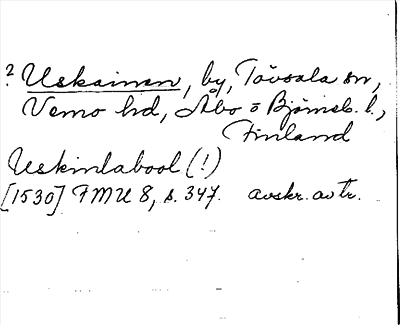 ? Uskainen, by, Tövsala sn,
Vemo hd, Åbo o Björneb. l.,
Finland
Uskinlabool (!)
[1530] FMU 8, s. 347. avskr. av tr.